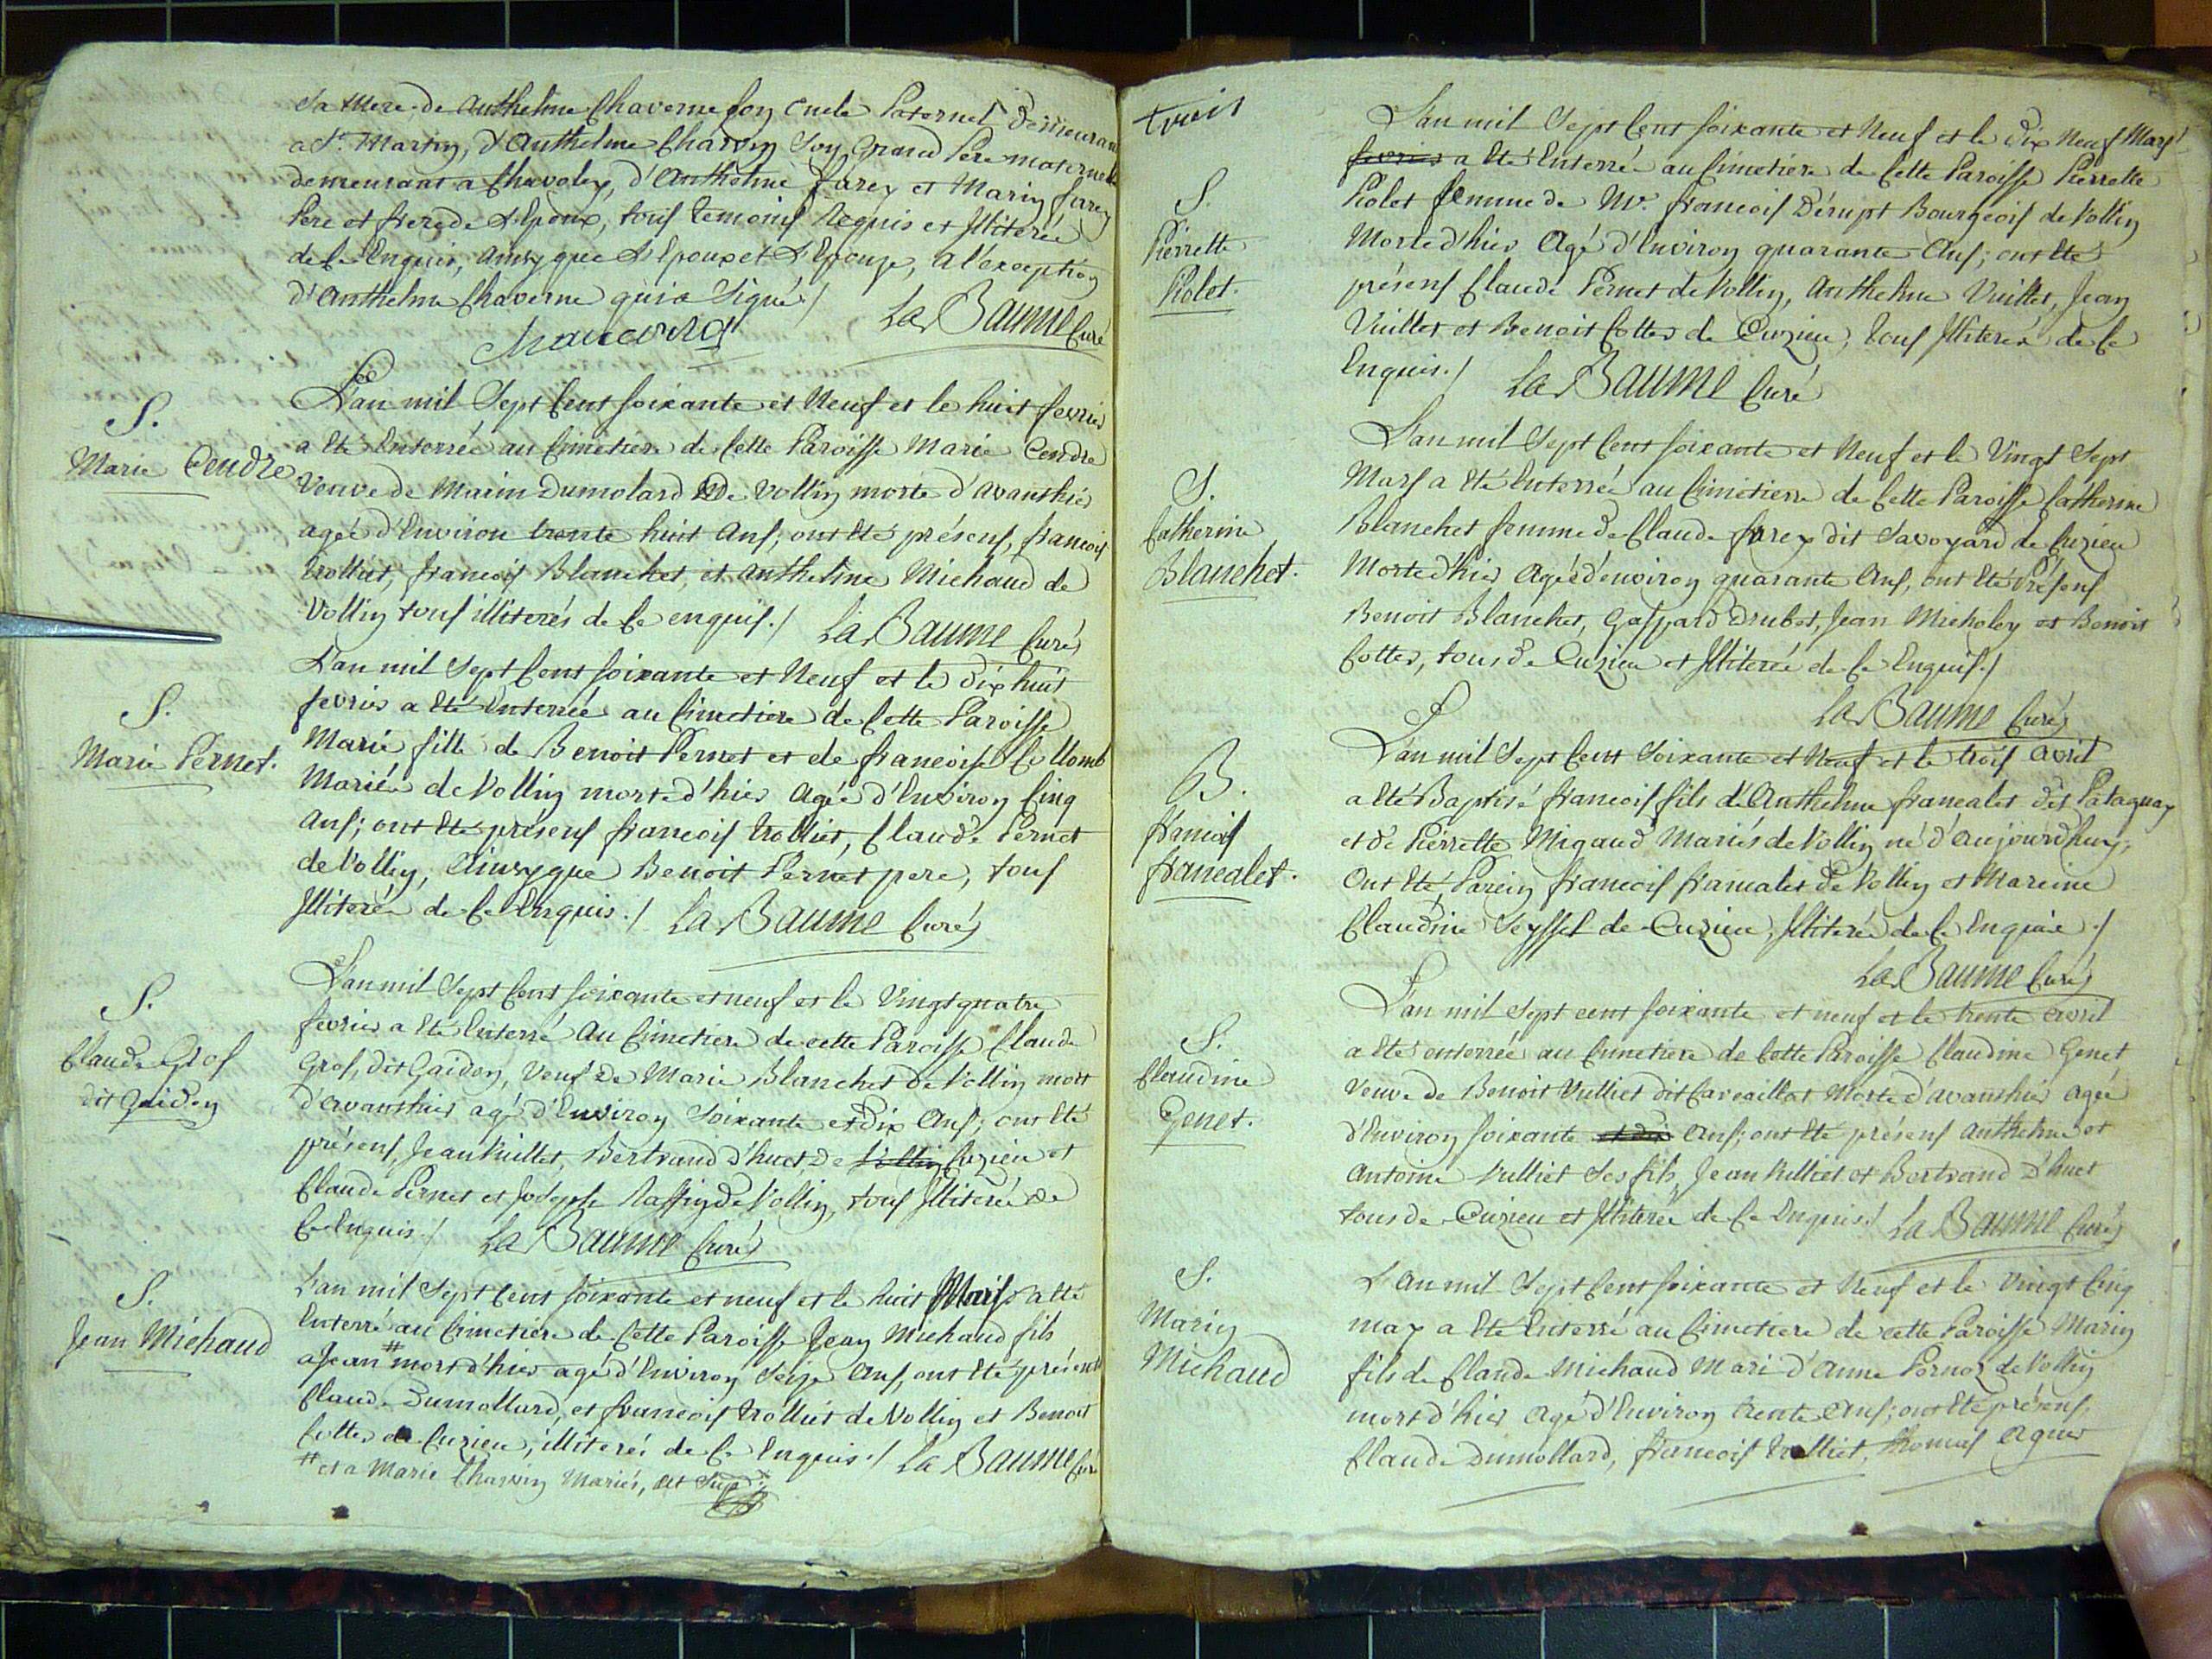 Sa Mere, de Anthelme Chaverne son oncle Paternel Demeurant
a St. Martin, d'Anthelme Charvin Son Grand Pere maternel
demeurant a Chavoley, d'Anthelme farey et Marin farey
Pere et frere de L'Epoux, tous temoins Requis et Illiterés
de ce Enquis, Ainsy que L'Epoux et L'Epouse, a l'exception
d'Anthelme Chaverne qui a Signé ./.
Chaverne
La Baume Curé
S.
Marie Cendre
L'an mil Sept Cent soixante et Neuf et le huit fevrier
a Eté Enterrée au Cimetiere de Cette Paroisse Marie Cendre
Veuve de Marin Dumolard de Vollin morte d'avanthier
agée d'Environ trente huit Ans; ont eté présens, francois
trolliet, francois Blanchet, et anthelme Michaud de
Vollin tous illiterés de Ce enquis ./. La Baume Curé
S.
Marie Pernet.
L'an mil Sept Cent soixante et Neuf et le dix huit
fevrier a Eté Enterrée au Cimetiere de Cette Paroisse
Marie fille de Benoit Pernet et de francoise Collomb
Mariés de Vollin morte d'hier Agée d'Environ Cinq
Ans; ont Eté présens francois trolliet, Claude Pernet
de Vollin, Ainsy que Benoit Pernet pere, tous
Illiterés de Ce Enquis ./. La Baume Curé
S.
Claude Gros
dit Gaidon
L'an mil Sept Cent soixante et neuf et le Vingt quatre
fevrier a Eté Enterré Au Cimetiere de cette Paroisse Claude
Gros, dit Gaidon, Veuf de Marie Blanchet de Vollin mort
d'avanthier agé d'Environ Soixante et Dix Ans; ont Eté
présens, Jean Vuillet, Bertrand d'huet, de Vollin Cuzieu et
Claude Pernet et Joseph Raffin de Vollin, tous Illiterés de
Ce Enquis ./. La Baume Curé
S.
Jean Michaud
L'an mil Sept Cent soixante et neuf et le huit Mars a eté
Enterré au Cimetiere de Cette Paroisse Jean Michaud fils
a Jean # mort d'hier agé d'Environ Seize Ans, ont Eté présens
Claude Dumollard, et francois trolliet de Vollin et Benoit
Cottes de Cuzieu, illiterés de Ce Enquis ./. La Baume Curé
# et a Marie Charvin Mariés,
trois
S.
Pierrette
Piolet.
L'an mil Sept Cent soixante et Neuf et le Dix Neuf Mars
fevrier a Eté Enterrée au Cimetiere de Cette Paroisse Pierrette
Piolet femme de Mr. francois Dérupt Bourgeois de Vollin
Morte d'hier Agé d'Environ quarante Ans; ont Eté
présens Claude Pernet de Vollin, Anthelme Vuillet, Jean
Vuillet et Benoit Cottes de Cuzieu, tous Illiterés de Ce
Enquis ./. La Baume Curé
S.
Catherine
Blanchet.
L'an mil Sept Cent soixante et Neuf et le Vingt Sept
Mars a Eté Enterrée au Cimetiere de Cette Paroisse Catherine
Blanchet femme de Claude farey dit Savoyard de Cuzieu
Morte d'hier Agée d'environ quarante Ans, ont Eté Présens
Benoit Blanchet, Gaspard Drubet, Jean Micholey et Benoit
Cottes, tous de Cuzieu et Illiterés de Ce Enquis ./.
La Baume Curé
B.
francois
francalet.
L'an mil Sept Cent Soixante et Neuf et le trois avril
a Eté Baptisé francois fils d'Anthelme francalet dit Pataquay
et de Pierrette Migaud Mariés de Vollin né d'Aujourdhuy;
Ont Eté Parein francois francalet de Vollin et Mareine
Claudine Seyssel de Cuzieu, Illiterés de Ce Enquis ./.
La Baume Curé
S.
Claudine
Genet.
L'an mil Sept cent soixante et neuf et le trente avril
a eté enterrée au Cimetiere de Cette Paroisse Claudine Genet
Veuve de Benoit Vulliet dit Cavoaillat Morte d'avanthier agée
d'Environ soixante et dix Ans; ont Eté présens Anthelme et
Antoine Vulliet Ses fils, Jean Vulliet et Bertrand D'huet
tous de Cuzieu et Illiterés de Ce Enquis ./. La Baume Curé
S.
Marin
Michaud
L'an mil Sept Cent soixante et Neuf et le Vingt Cinq
may a Eté Enterré au Cimetiere de cette Paroisse Marin
fils de Claude Michaud Mari d'Anne Pernoz de Vollin
mort d'hier Agé d'Environ trente Ans; ont Eté présens
Claude Dumollard, francois trolliet, thomas Agnes